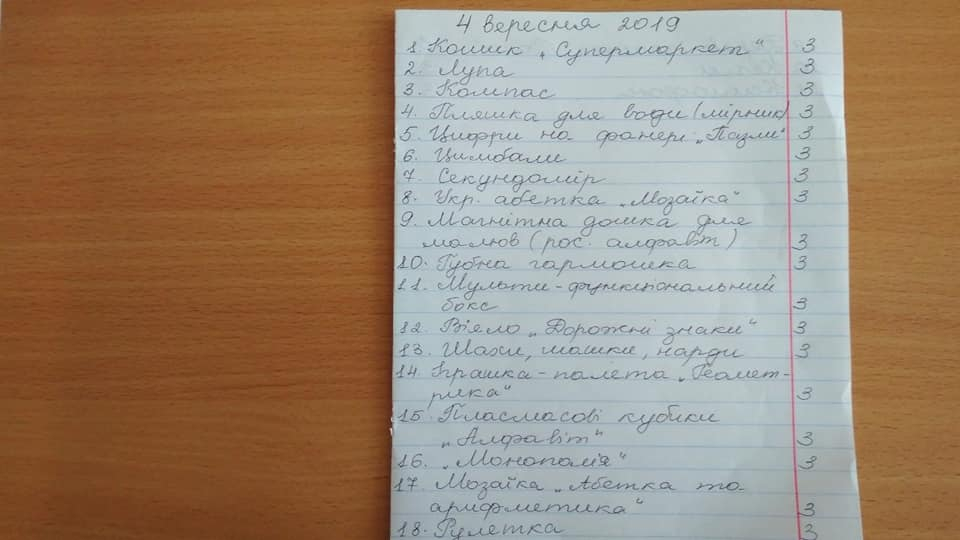 4 вересня 2019
1 Кошик „Супермаркет“ 3
2. Лупа 3
3. Компас 3
4. Пляшка для води (мірник) 3
5. Цифри на фанері „Пазли“ 3
6. Цимбали 3
7. Секундомір 3
8. Укр. абетка „Мозаїка“ 3
9. Магнітна дошка для
малюв (рос. алфавіт) 3
10. Губна гармошка 3
11. Мульти-функціональний
бокс 3
12. Віяло „Дорожні знаки“ 3
13. Шахи, шашки, нарди 3
14. Іграшка-палета „Геомет-
рика“ 3
15. Пласмасові кубики
„Алфавіт“ 3
16. „Монополія“ 3
17. Мозаїка „Абетка та
арифметика“ 3
18. Рулетка 3